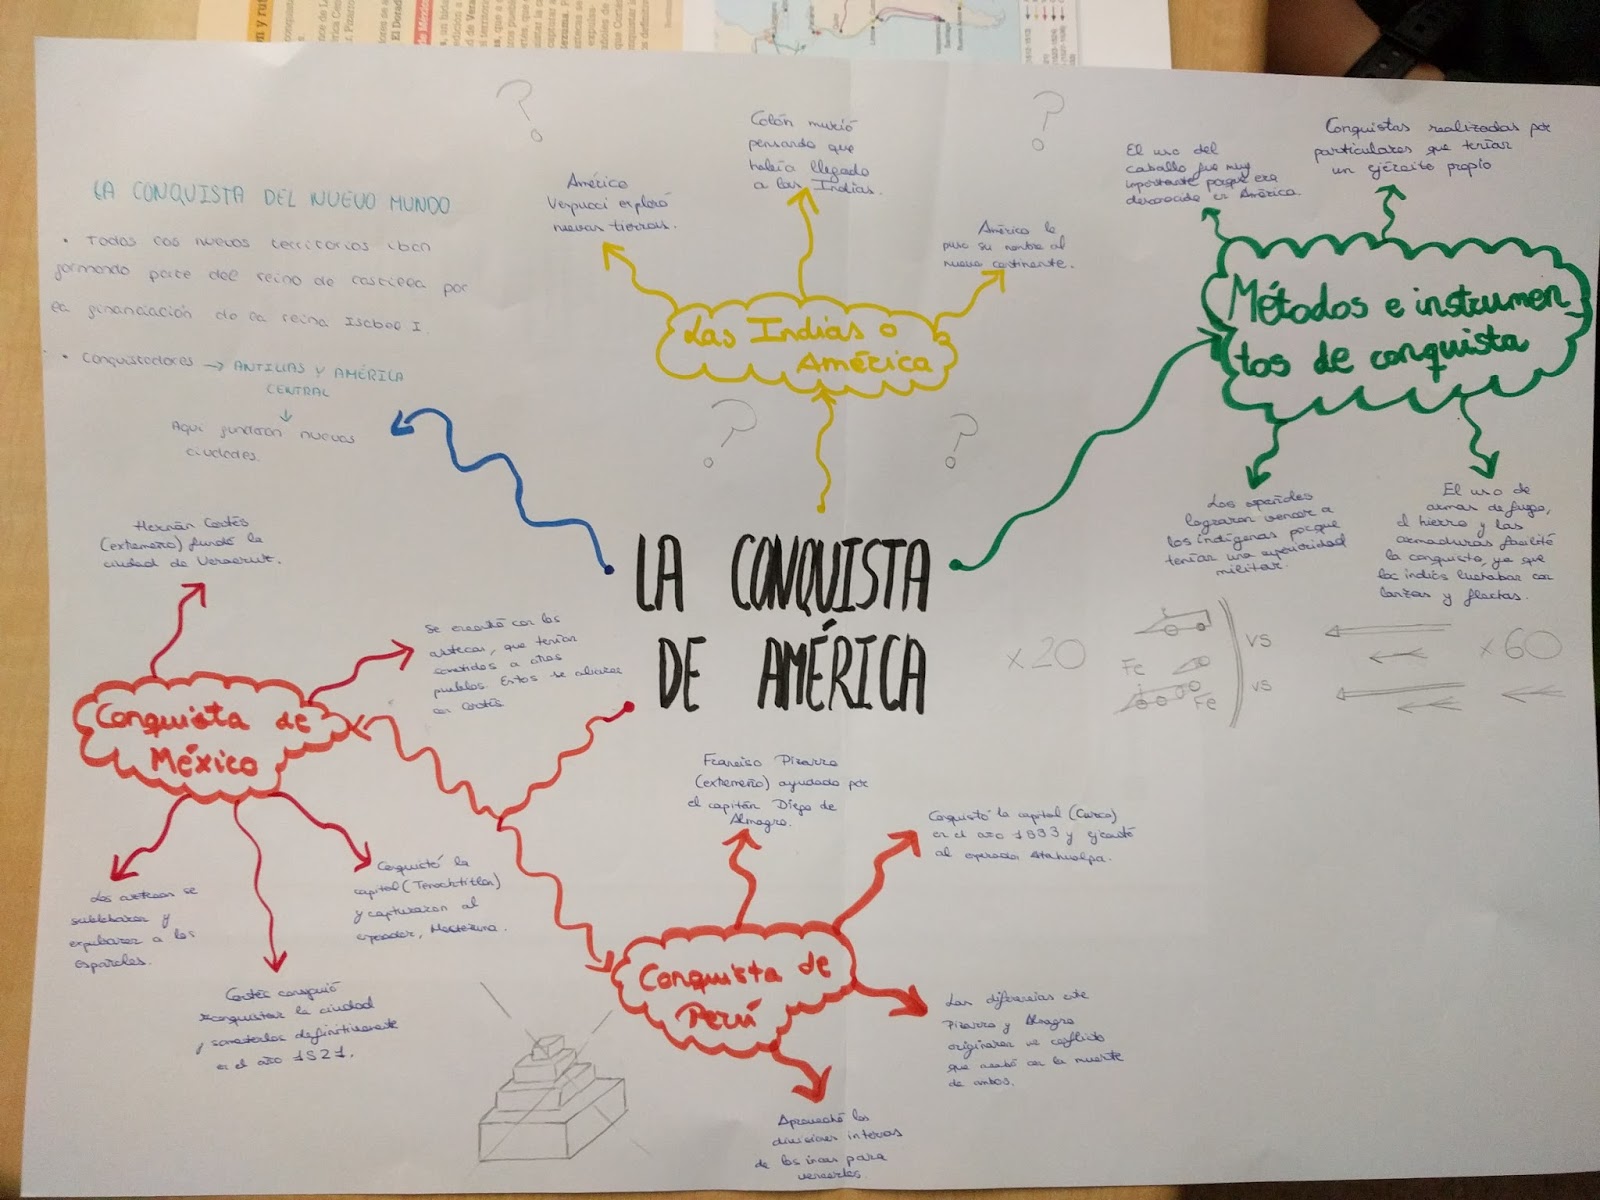 LA CONQUISTA
DE AMÉRICA
LA CONQUISTA DEL NUEVO MUNDO
• Todos los nuevos territorios iban
formando parte del reino de Castilla por
la financiación de la reina Isabel I.
• Conquistadores → ANTILLAS Y AMÉRICA
CENTRAL
Aquí fundaron nuevas
ciudades.
Las Indias o
América
Américo
Vespucci exploró
nuevas tierras.
Colón murió
pensando que
había llegado
a las Indias.
Américo le
puso su nombre al
nuevo continente.
Métodos e instrumen-
tos de conquista
El uso del
caballo fue muy
importante porque era
desconocido en América.
Conquistas realizadas por
particulares que tenían
un ejército propio
Los españoles
lograron vencer a
los indígenas porque
tenían una superioridad
militar.
El uso de
armas de fuego,
el hierro y las
armaduras facilitó
la conquista, ya que
los indios luchaban con
lanzas y flechas.
x20
Fe
Fe
VS
VS
x60
Conquista de
México
Hernán Cortés
(extremeño) fundó la
ciudad de Veracruz.
Se encontró con los
aztecas, que tenían
sometidos a otros
pueblos. Estos se aliaron
con Cortés
Los aztecas se
sublebaron y
expulsaron a los
españoles.
Cortés consiguió
reconquistar la ciudad
y someterlos definitivamente
en el año 1521.
Conquistó la
capital (Tenochtitlan)
y capturaron al
emperador, Moctezuma.
Conquista de
Perú
Francisco Pizarro
(extremeño) ayudado por
el capitán Diego de
Almagro.
Conquistó la capital (Cuzco)
en el año 1533 y ejecutó
al emperador Atahualpa.
Las diferencias entre
Pizarro y Almagro
originaron un conflicto
que acabó con la muerte
de ambos.
Aprovechó las
divisiones internas
de los incas para
vencerles